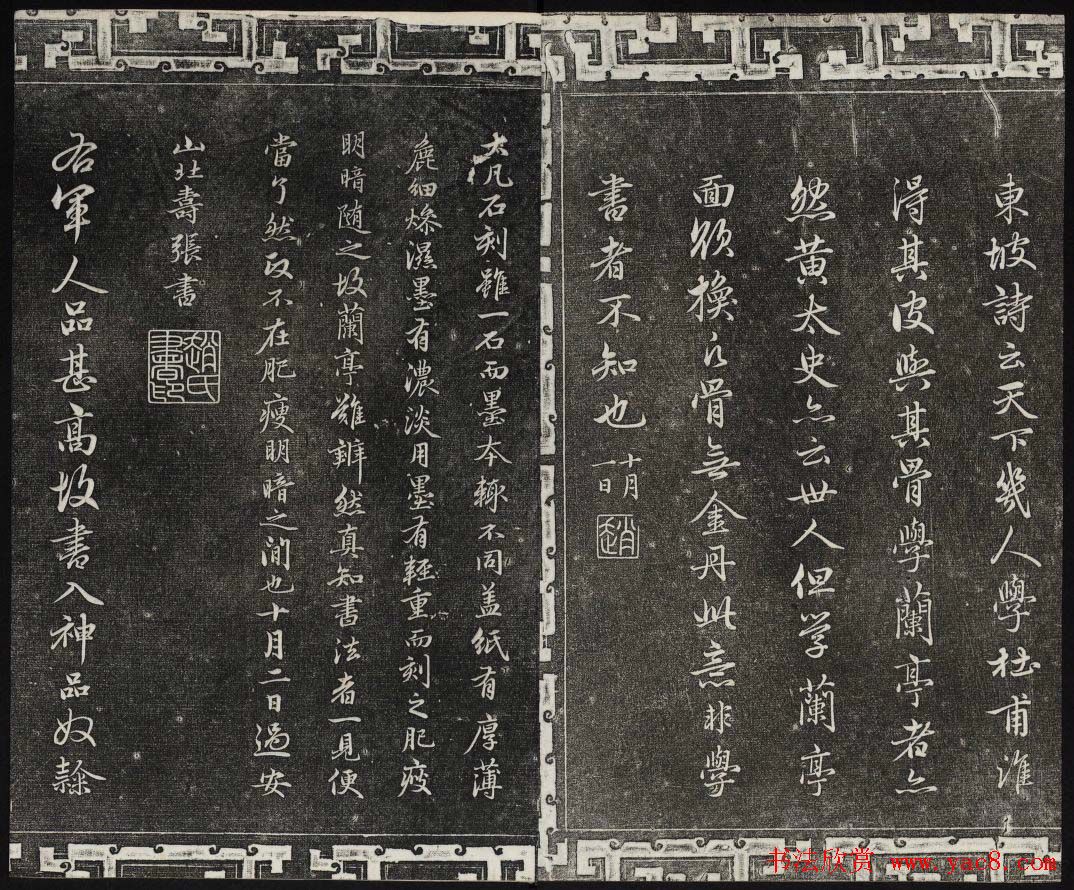 東坡詩云天下幾人學杜甫誰
得其皮與其骨學蘭亭者亦
然黄太史亦云世人但學蘭亭
面欲換凡骨無金丹此意非學
書者不知也 十月
一日
趙
大凡石刻雖一石而墨本輒不同盖紙有厚薄
麄細燥濕墨有濃淡用墨有輕重而刻之肥瘦
明暗随之故蘭亭難辨然真知書法者一見便
當了然政不在肥瘦明暗之間也十月二日過安
山北壽張書
趙氏
書印
右軍人品甚高故書入神品奴隸
书法欣赏 www.yac8.com